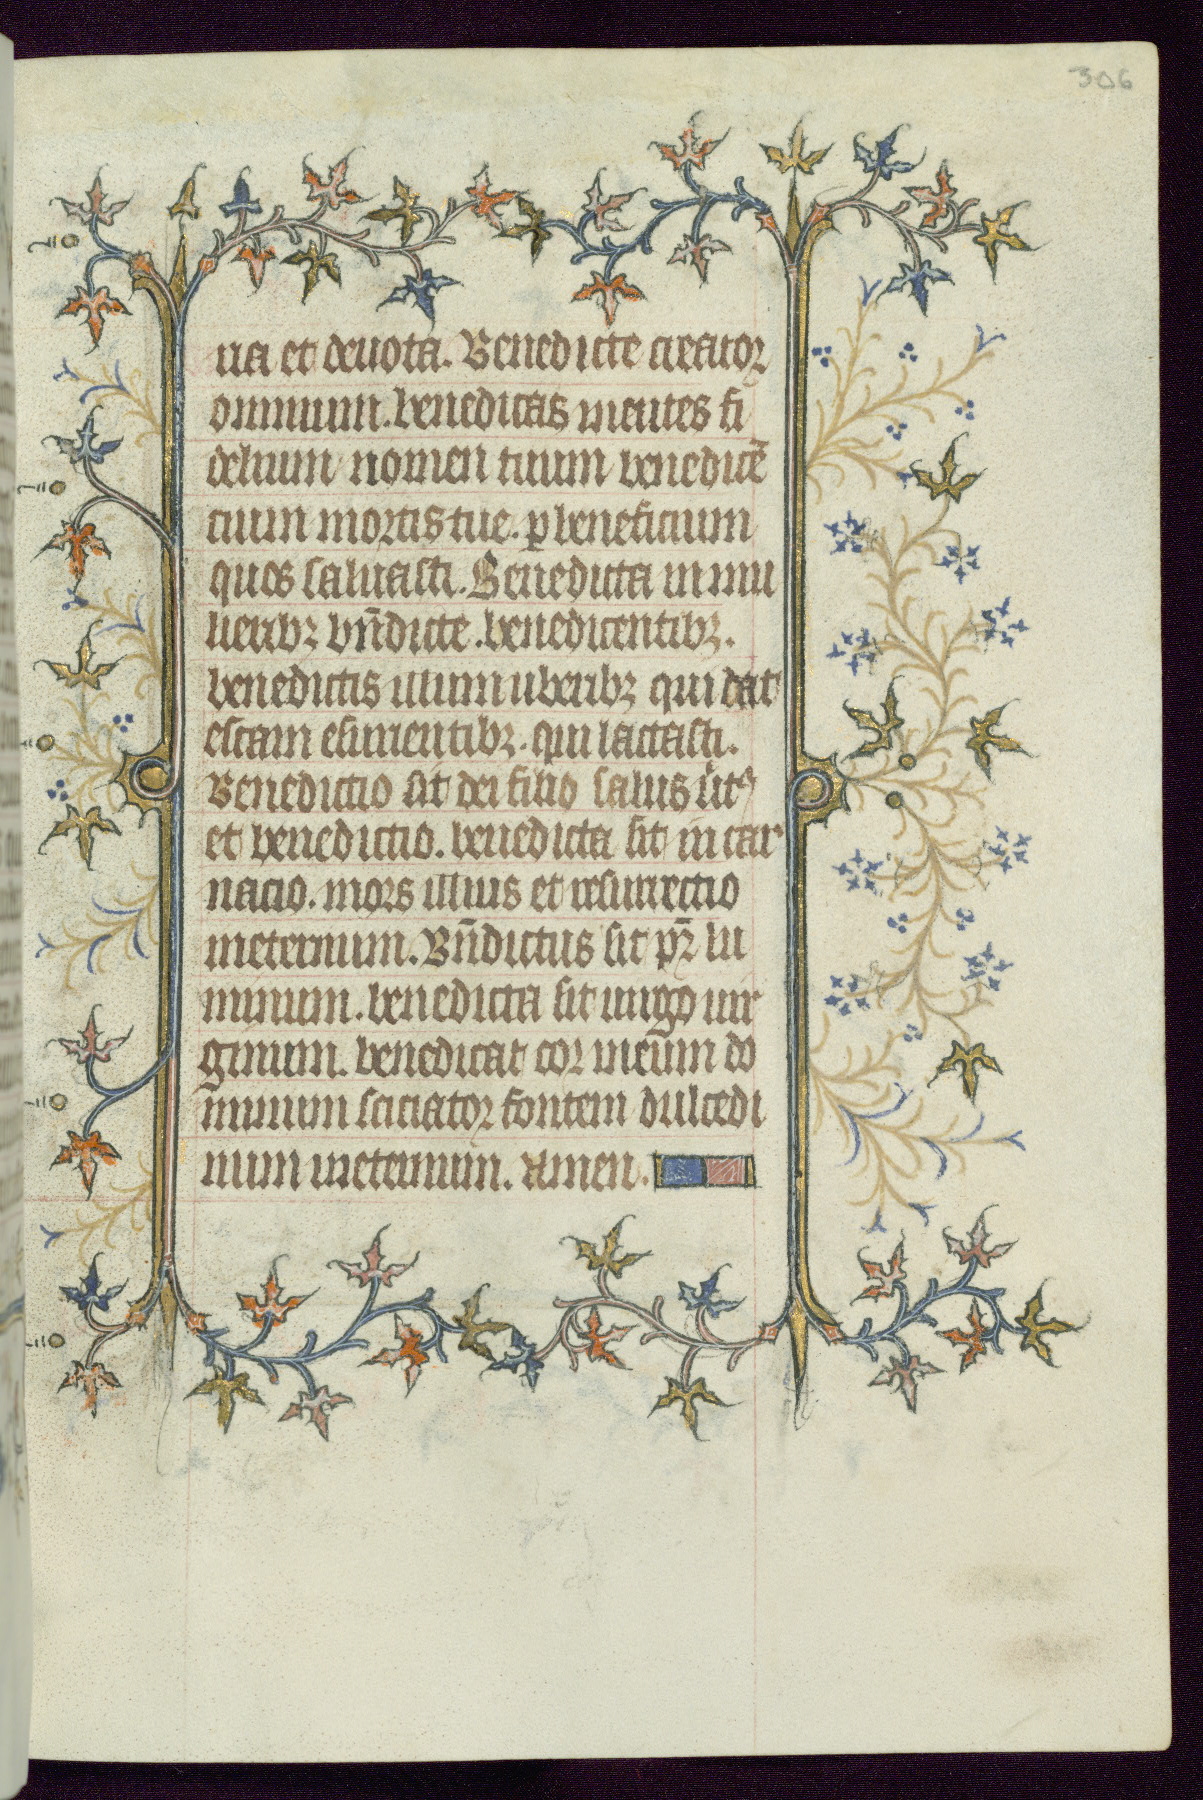 306
ua et deuota. Benedicte creator
omnium. benedicas mentes fi
delium nomen tuum benedicē
cium mortis tue. ꝑ beneficium
quos saluasti. Benedicta in mu
lieribꝫ bn̄dicte. benedicentibꝫ.
benedictis illum uberibꝫ qui dat
escam esurientibꝫ. qui lactasti.
Benedictio sit dei filio salus sit
et benedictio. benedicta sit in car
nacio. mors illius et resurrectio
ineternum. Bn̄dictus sit pr̄ lu
minum. benedicta sit uirgo uir
ginum. benedicat cor meum do
minum sciciator fontem dulcedi
num ineternum. Amen.